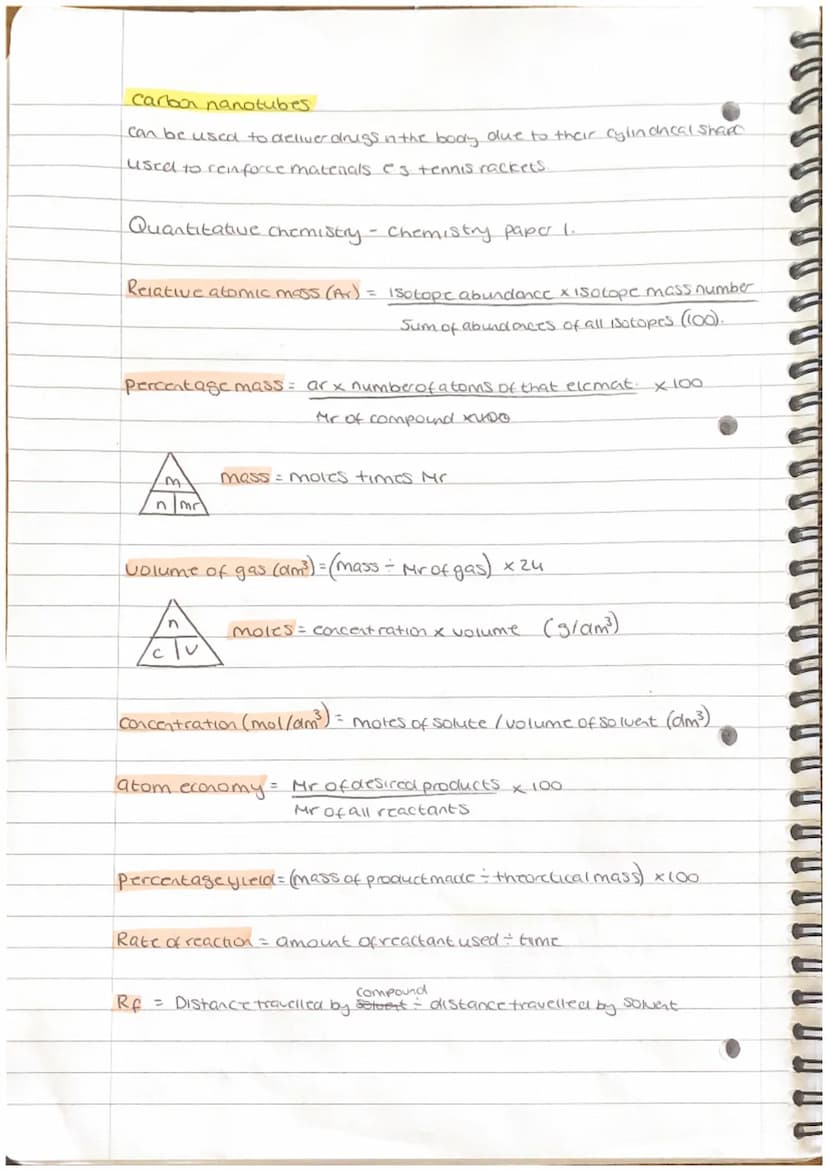 carbon nanotubes
can be used to deliver drugs in the body due to their cylindrical shape
used to reinforce materials eg tennis rackets.
Quantitative chemistry - Chemistry paper 1.
Relative atomic mass (Ar) = isotope abundance x isotope mass number
Sum of abundances of all isotopes (100).
percentage mass = ar x number of atoms of that element. x 100
Mr of compound
m
n mr
mass = moles times Mr
volume of gas (dm³) = (mass ÷ Mr of gas) x 24
n
c v
moles = concentration x volume (g/dm³)
concentration (mol/dm³) = moles of solute / volume of solvent (dm³)
atom economy = Mr of desired products x 100
Mr of all reactants
percentage yield = (mass of product made ÷ theoretical mass) x 100
Rate of reaction = amount of reactant used ÷ time
compound
Rf = Distance travelled by solvent ÷ distance travelled by solvent